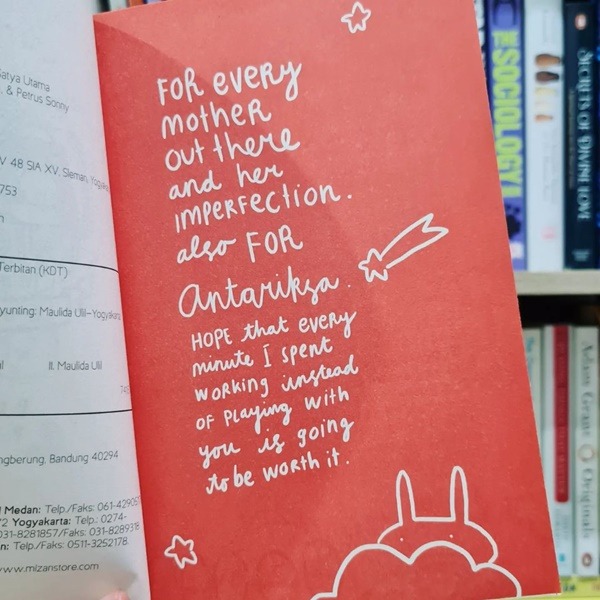 FOR every
mother
out there
and her
IMPERFection.
also FOR
Antariksa.
HOPE that every
minute I spent
working instead
of playing with
you is going
to be worth it.
atya Utama
. & Petrus Sonny
V 48 SIA XV, Sleman, Yogya
753
Terbitan (KDT)
yunting: Maulida Ulil—Yogyaka
II. Maulida Ulil
ngberung, Bandung 40294
Medan: Telp./Faks: 061-42906
72 Yogyakarta: Telp.: 0274-
031-8281857/Faks: 031-828931
n: Telp./Faks: 0511-3252178.
www.mizanstore.com
THE SOCIOLOGY
SECRETS OF DIVINE LOVE
Adam Grant Originals